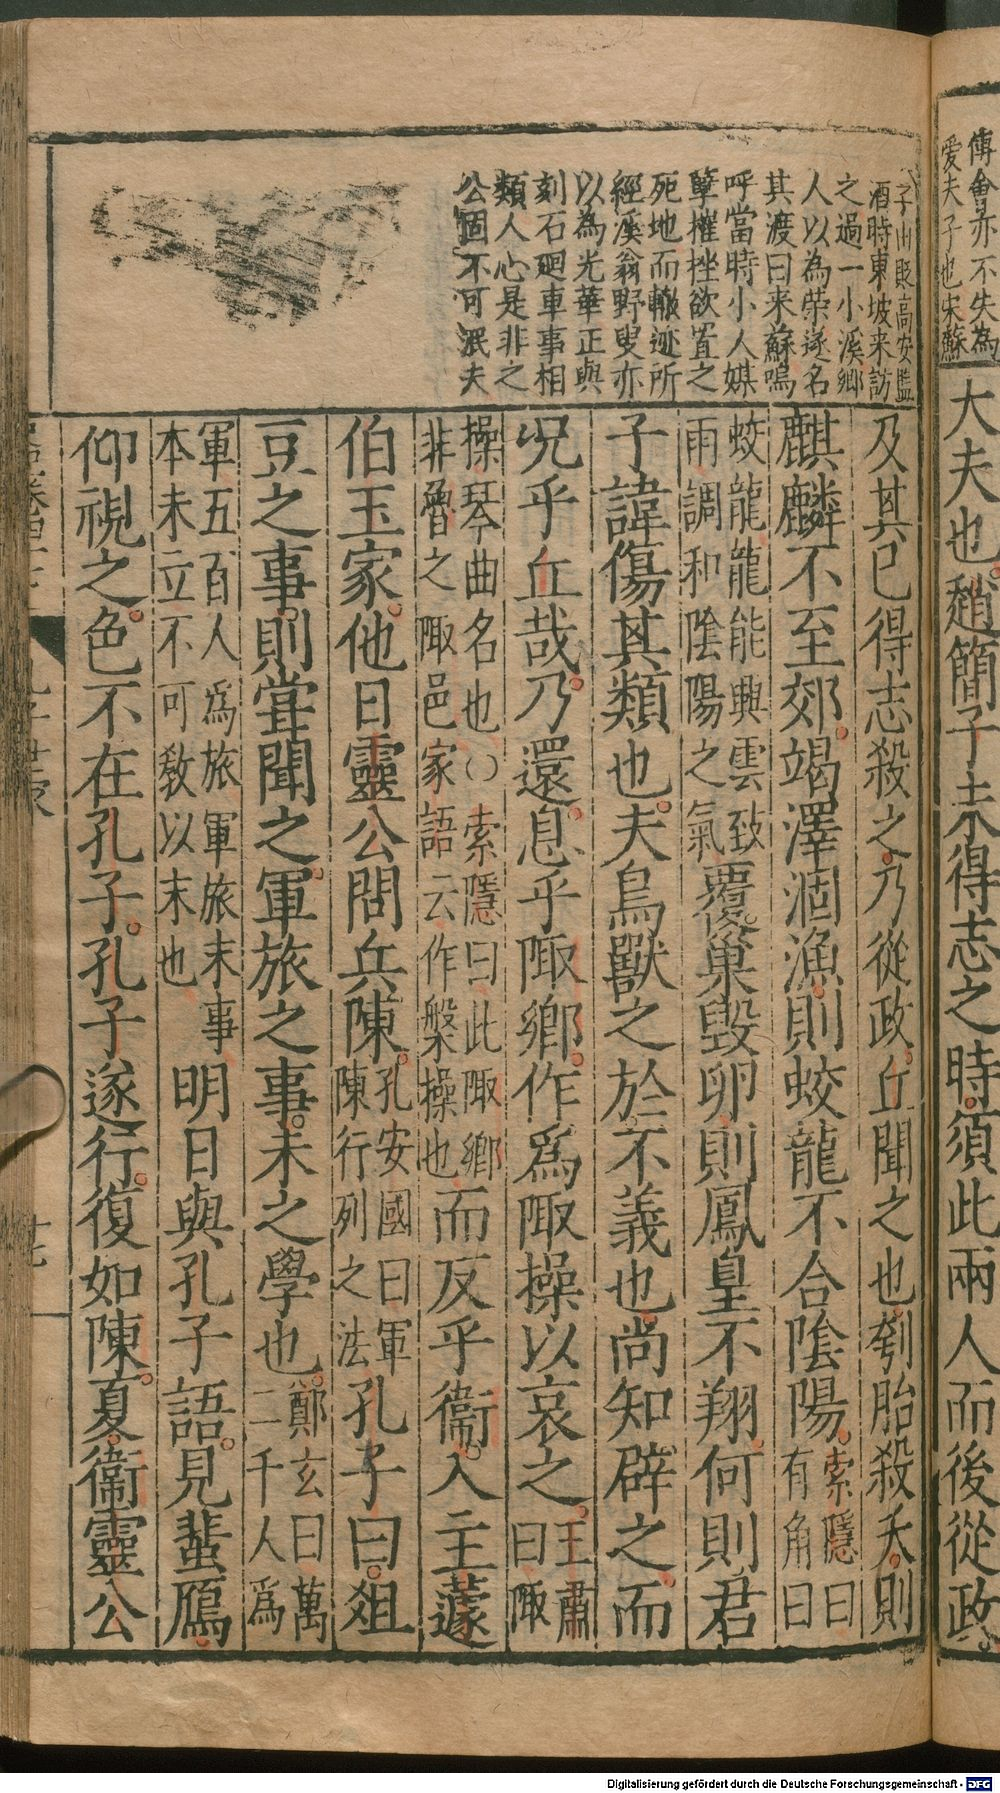 傳會亦不失為
愛夫子也宋蘇
大夫也趙簡子未得志之時須此兩人而後從政
子由貶高安監
酒時東坡来訪
之過一小溪鄉
人以為榮遂名
其渡曰来蘇嗚
呼當時小人媒
孽摧挫欲置之
死地而轍迹所
經溪翁野叟亦
以為光華正與
刻石廻車事相
類人心是非之
公固不可泯夫
及其已得志殺之乃從政丘聞之也刳胎殺夭則
麒麟不至郊竭澤涸漁則蛟龍不合陰陽索隱曰
有角曰
蛟龍龍能興雲致
雨調和陰陽之氣覆巢毀卵則鳳皇不翔何則君
子諱傷其類也夫鳥獸之於不義也尚知辟之而
况乎丘哉乃還息乎陬鄉作爲陬操以哀之王肅
曰陬
操琴曲名也○索隱曰此陬鄉
非魯之陬邑家語云作槃操也而反乎衞入主蘧
伯玉家他日靈公問兵陳孔安國曰軍
陳行列之法孔子曰俎
豆之事則甞聞之軍旅之事未之學也鄭玄曰萬
二千人爲
軍五百人爲旅軍旅末事
本未立不可敎以末也明日與孔子語見蜚鴈
仰視之色不在孔子孔子遂行復如陳夏衞靈公
孔子世家
十七
Digitalisierung gefördert durch die Deutsche Forschungsgemeinschaft - DFG